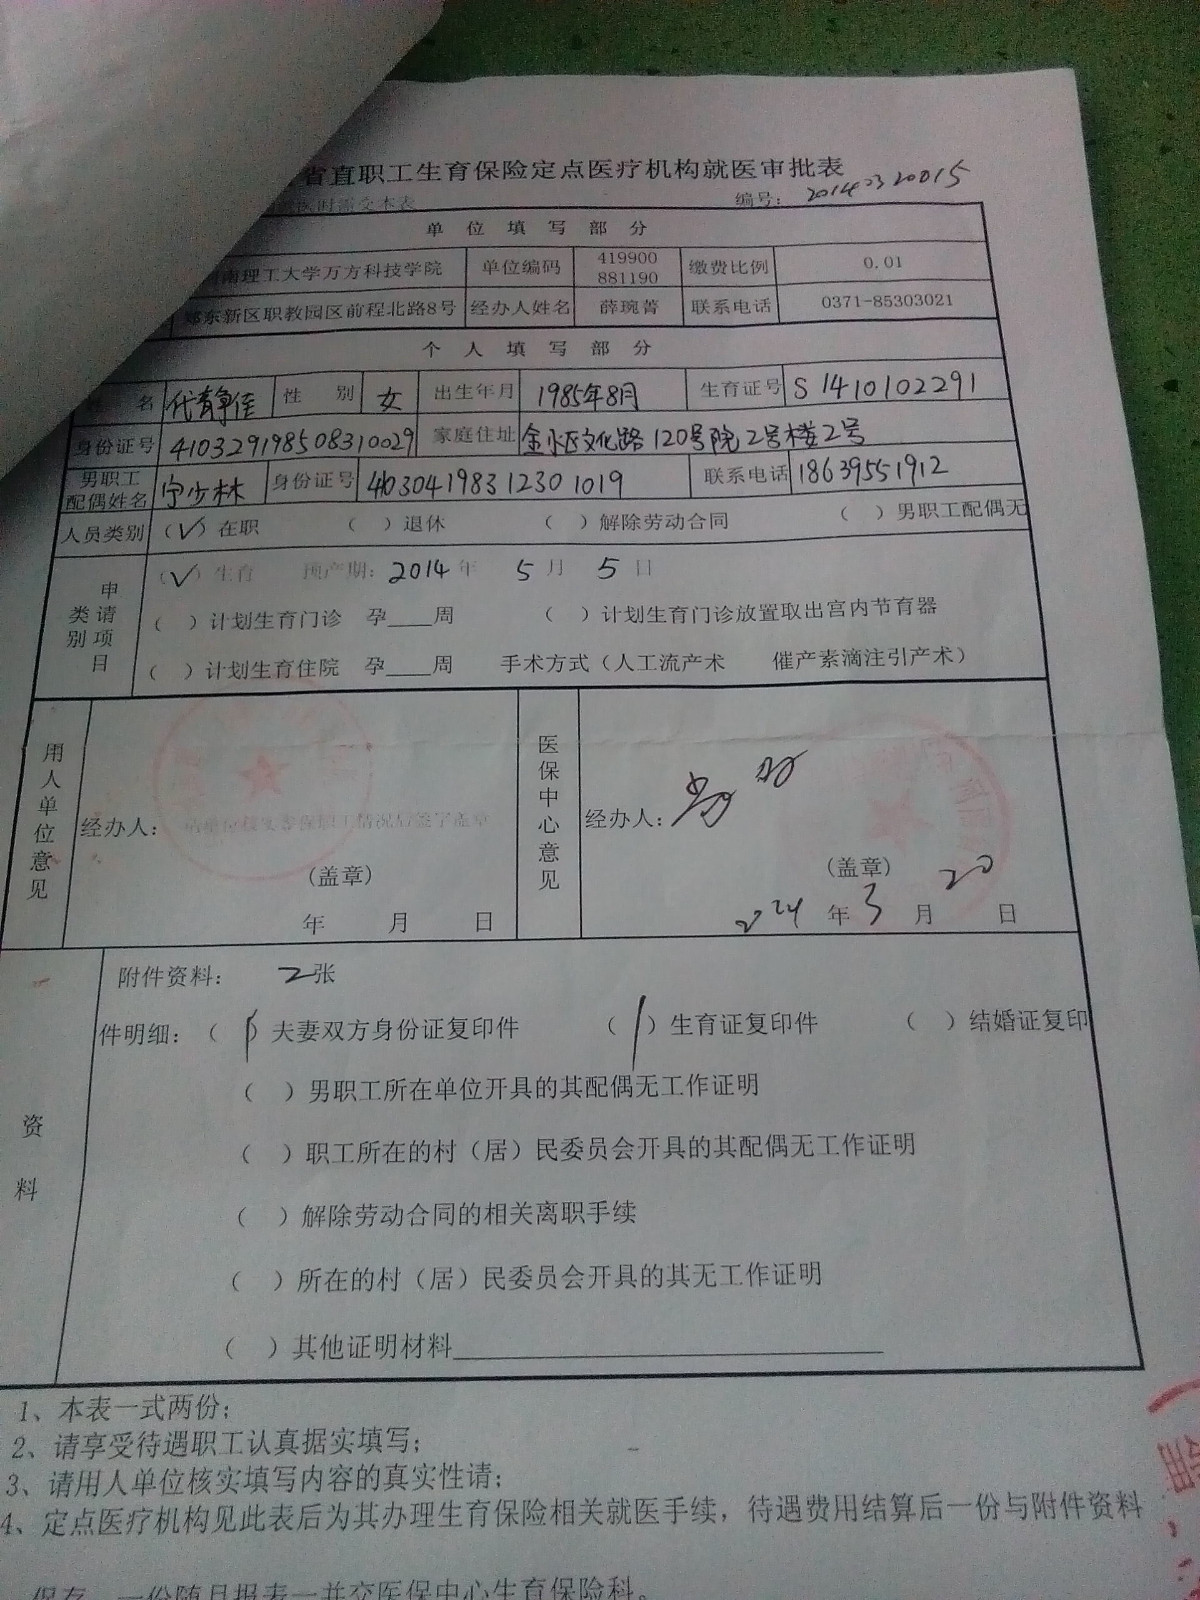 省直职工生育保险定点医疗机构就医审批表
时需交本表 编号：
单 位 填 写 部 分
南理工大学万方科技学院 单位编码 419900 881190 缴费比例 0.01
郑东新区职教园区前程北路8号 经办人姓名 薛琬菁 联系电话 0371-85303021
个 人 填 写 部 分
名 代静佳 性 别 女 出生年月 1985年8月 生育证号 S 1410102291
身份证号 410329198508310029 家庭住址 金水区文化路120号院2号楼2号
男职工配偶姓名 宁少林 身份证号 410304198312301019 联系电话 18639551912
人员类别 （√）在职 （ ）退休 （ ）解除劳动合同 （ ）男职工配偶无
申请项目类别
（√）生育 预产期：2014年 5月 5日
（ ）计划生育门诊 孕____周 （ ）计划生育门诊放置取出宫内节育器
（ ）计划生育住院 孕____周 手术方式（人工流产术 催产素滴注引产术）
用人单位意见
经办人： 请单位核实参保职工情况后签字盖章
（盖章）
年 月 日
医保中心意见
经办人：
（盖章）
年 3 月 20 日
资料
附件资料： 2张
件明细：（ ）夫妻双方身份证复印件 （ ）生育证复印件 （ ）结婚证复印
（ ）男职工所在单位开具的其配偶无工作证明
（ ）职工所在的村（居）民委员会开具的其配偶无工作证明
（ ）解除劳动合同的相关离职手续
（ ）所在的村（居）民委员会开具的其无工作证明
（ ）其他证明材料
1、本表一式两份；
2、请享受待遇职工认真据实填写；
3、请用人单位核实填写内容的真实性请；
4、定点医疗机构见此表后为其办理生育保险相关就医手续，待遇费用结算后一份与附件资料
保存，一份随月报表一并交医保中心生育保险科。